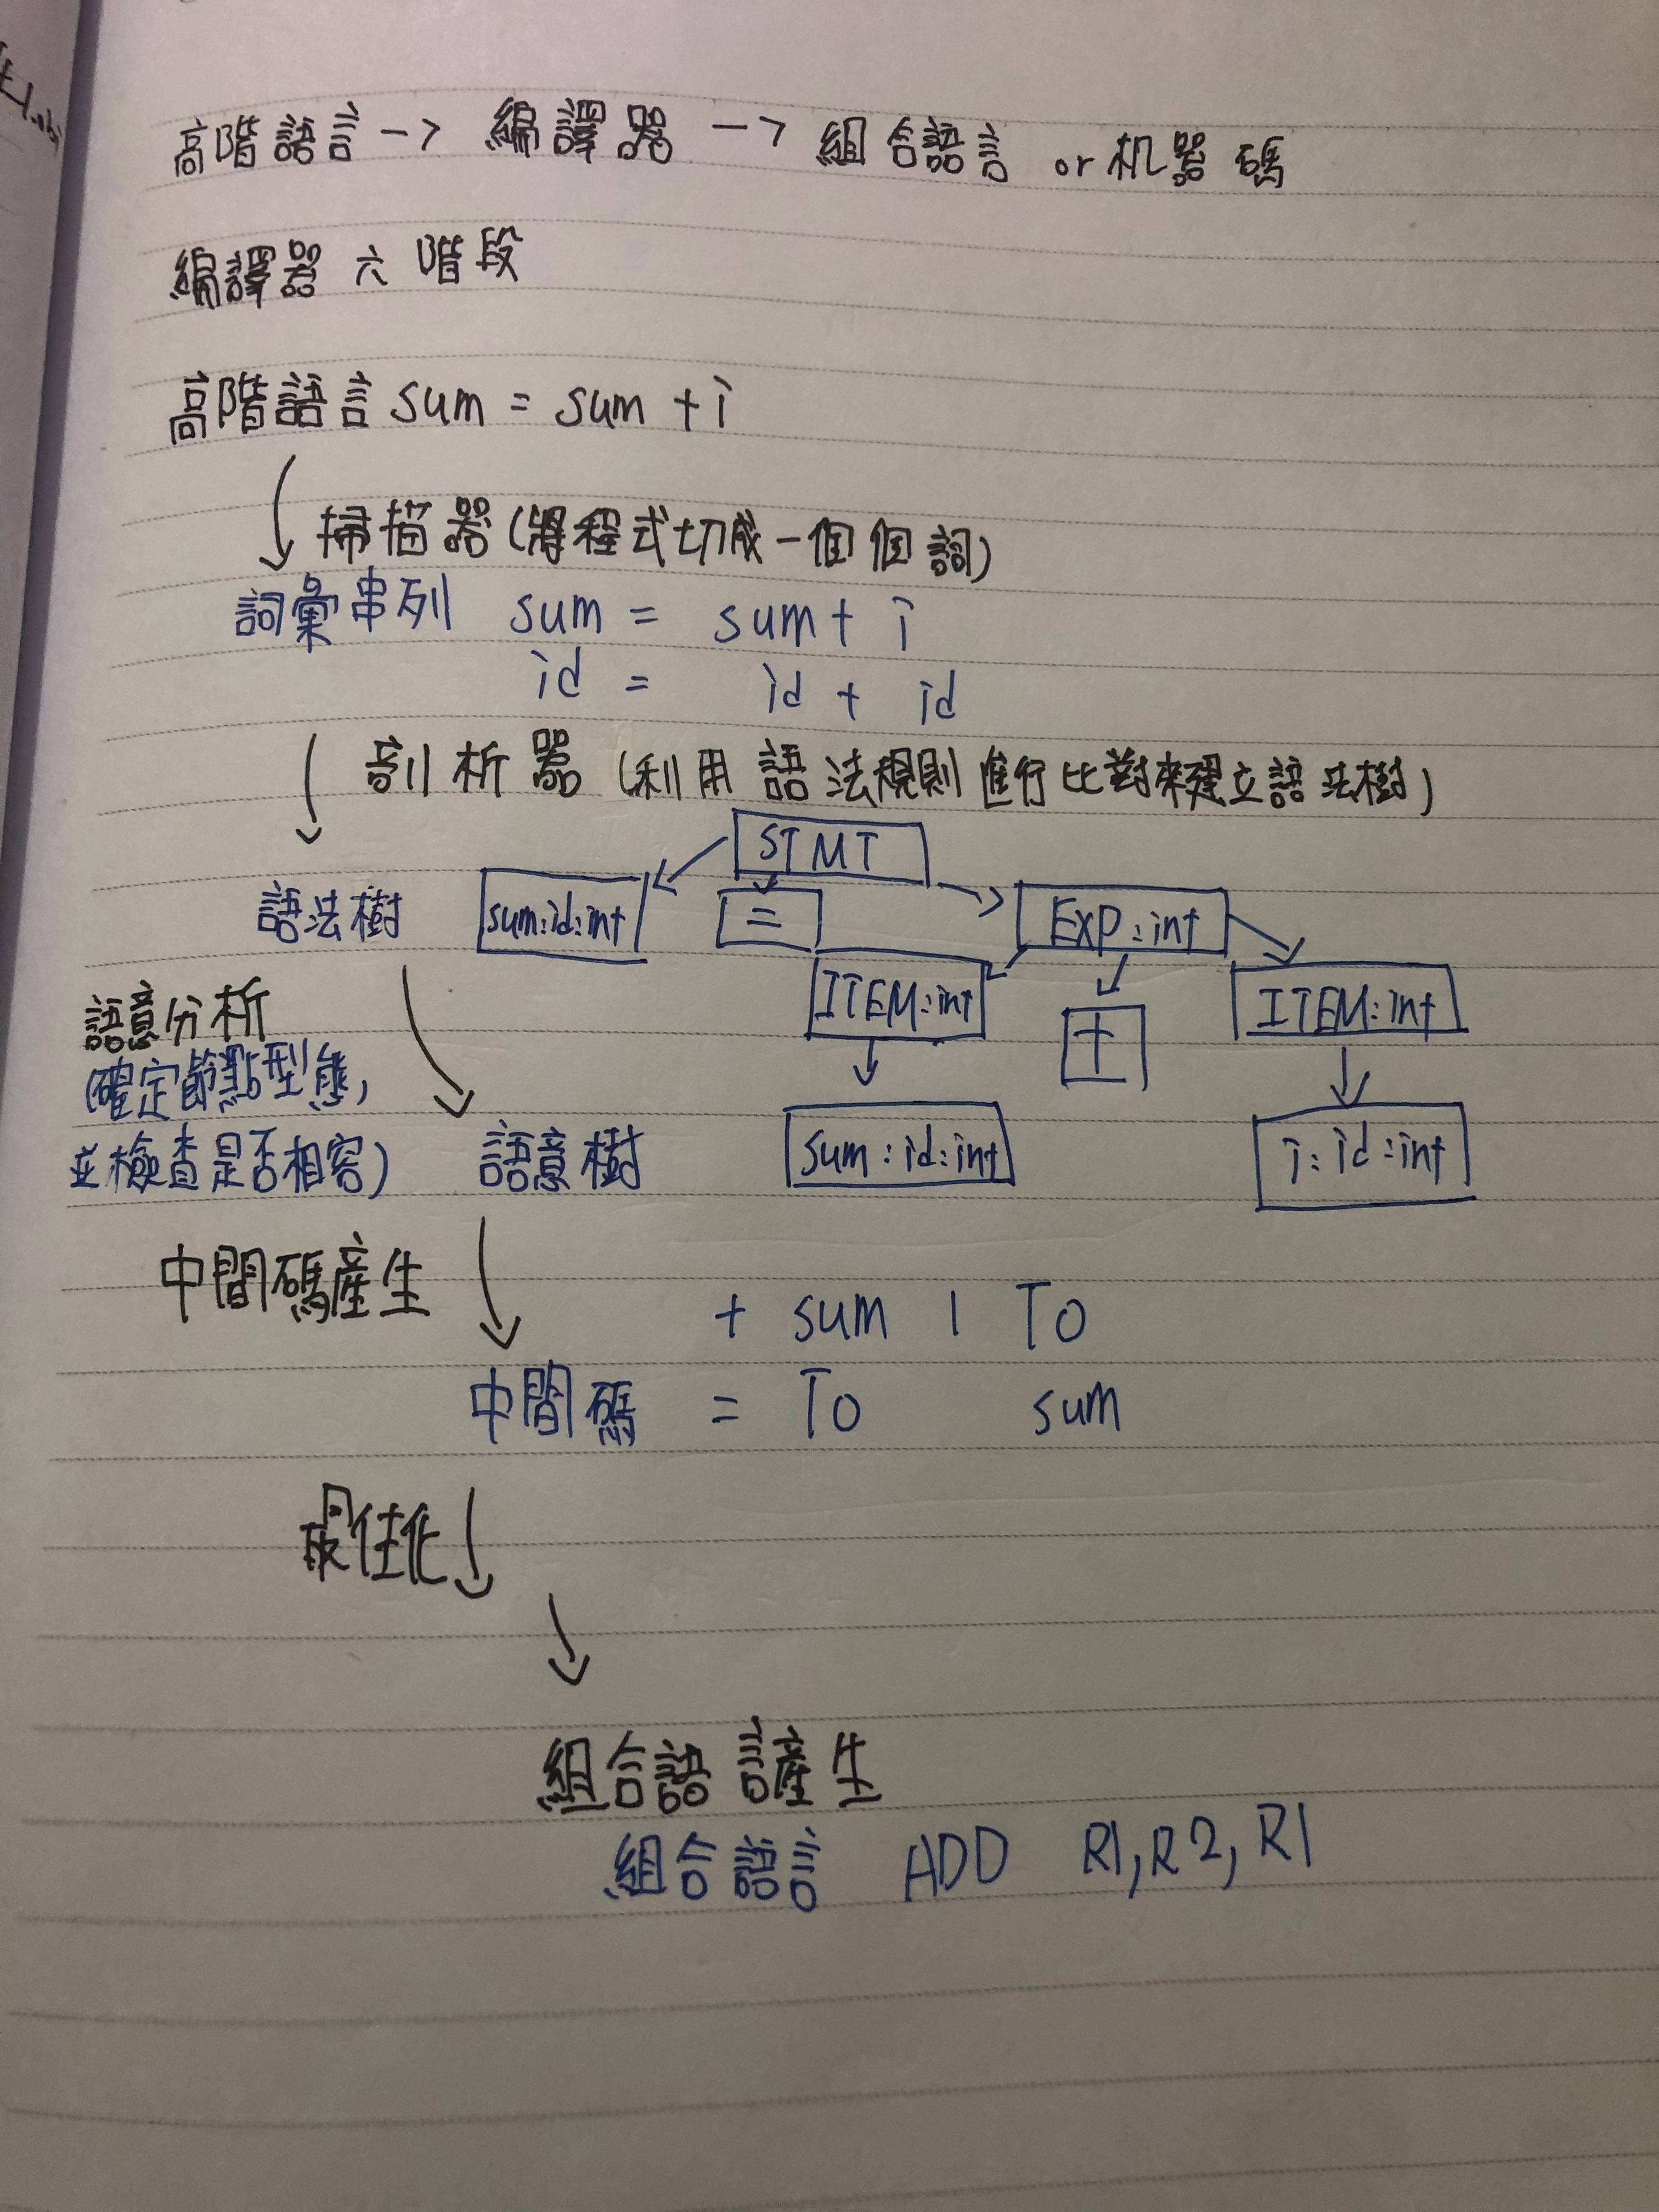 高階語言 -> 編譯器 -> 組合語言 or 机器碼
編譯器六階段
高階語言 sum = sum + i
掃描器(將程式切成一個個詞)
詞彙串列 sum = sum + i
id = id + id
剖析器(利用語法規則進行比對來建立語法樹)
STMT
語法樹 sum:id:int = EXP:int
ITEM:int + ITEM:int
語意分析
(確定節點型態,
並檢查是否相容) 語意樹 sum:id:int i:id:int
中間碼產生
+ sum I To
中間碼 = To sum
最佳化
組合語言產生
組合語言 ADD R1,R2,R1